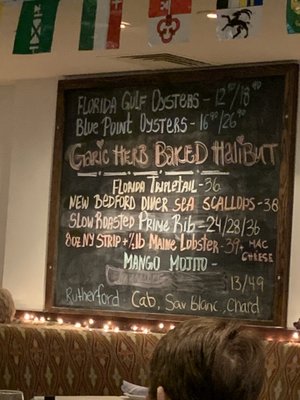 Florida Gulf Oysters - 12⁹⁰/18⁹⁰
Blue Point Oysters - 16⁹⁰/26⁹⁰
Garlic Herb Baked Halibut
Florida Tripletail - 36
New Bedford Diver Sea Scallops - 38
Slow Roasted Prime Rib - 24/28/36
8oz NY Strip + 1lb Maine Lobster - 39
Mac Cheese
Mango Mojito -
13/49
Rutherford Cab, Sav blanc, Chard